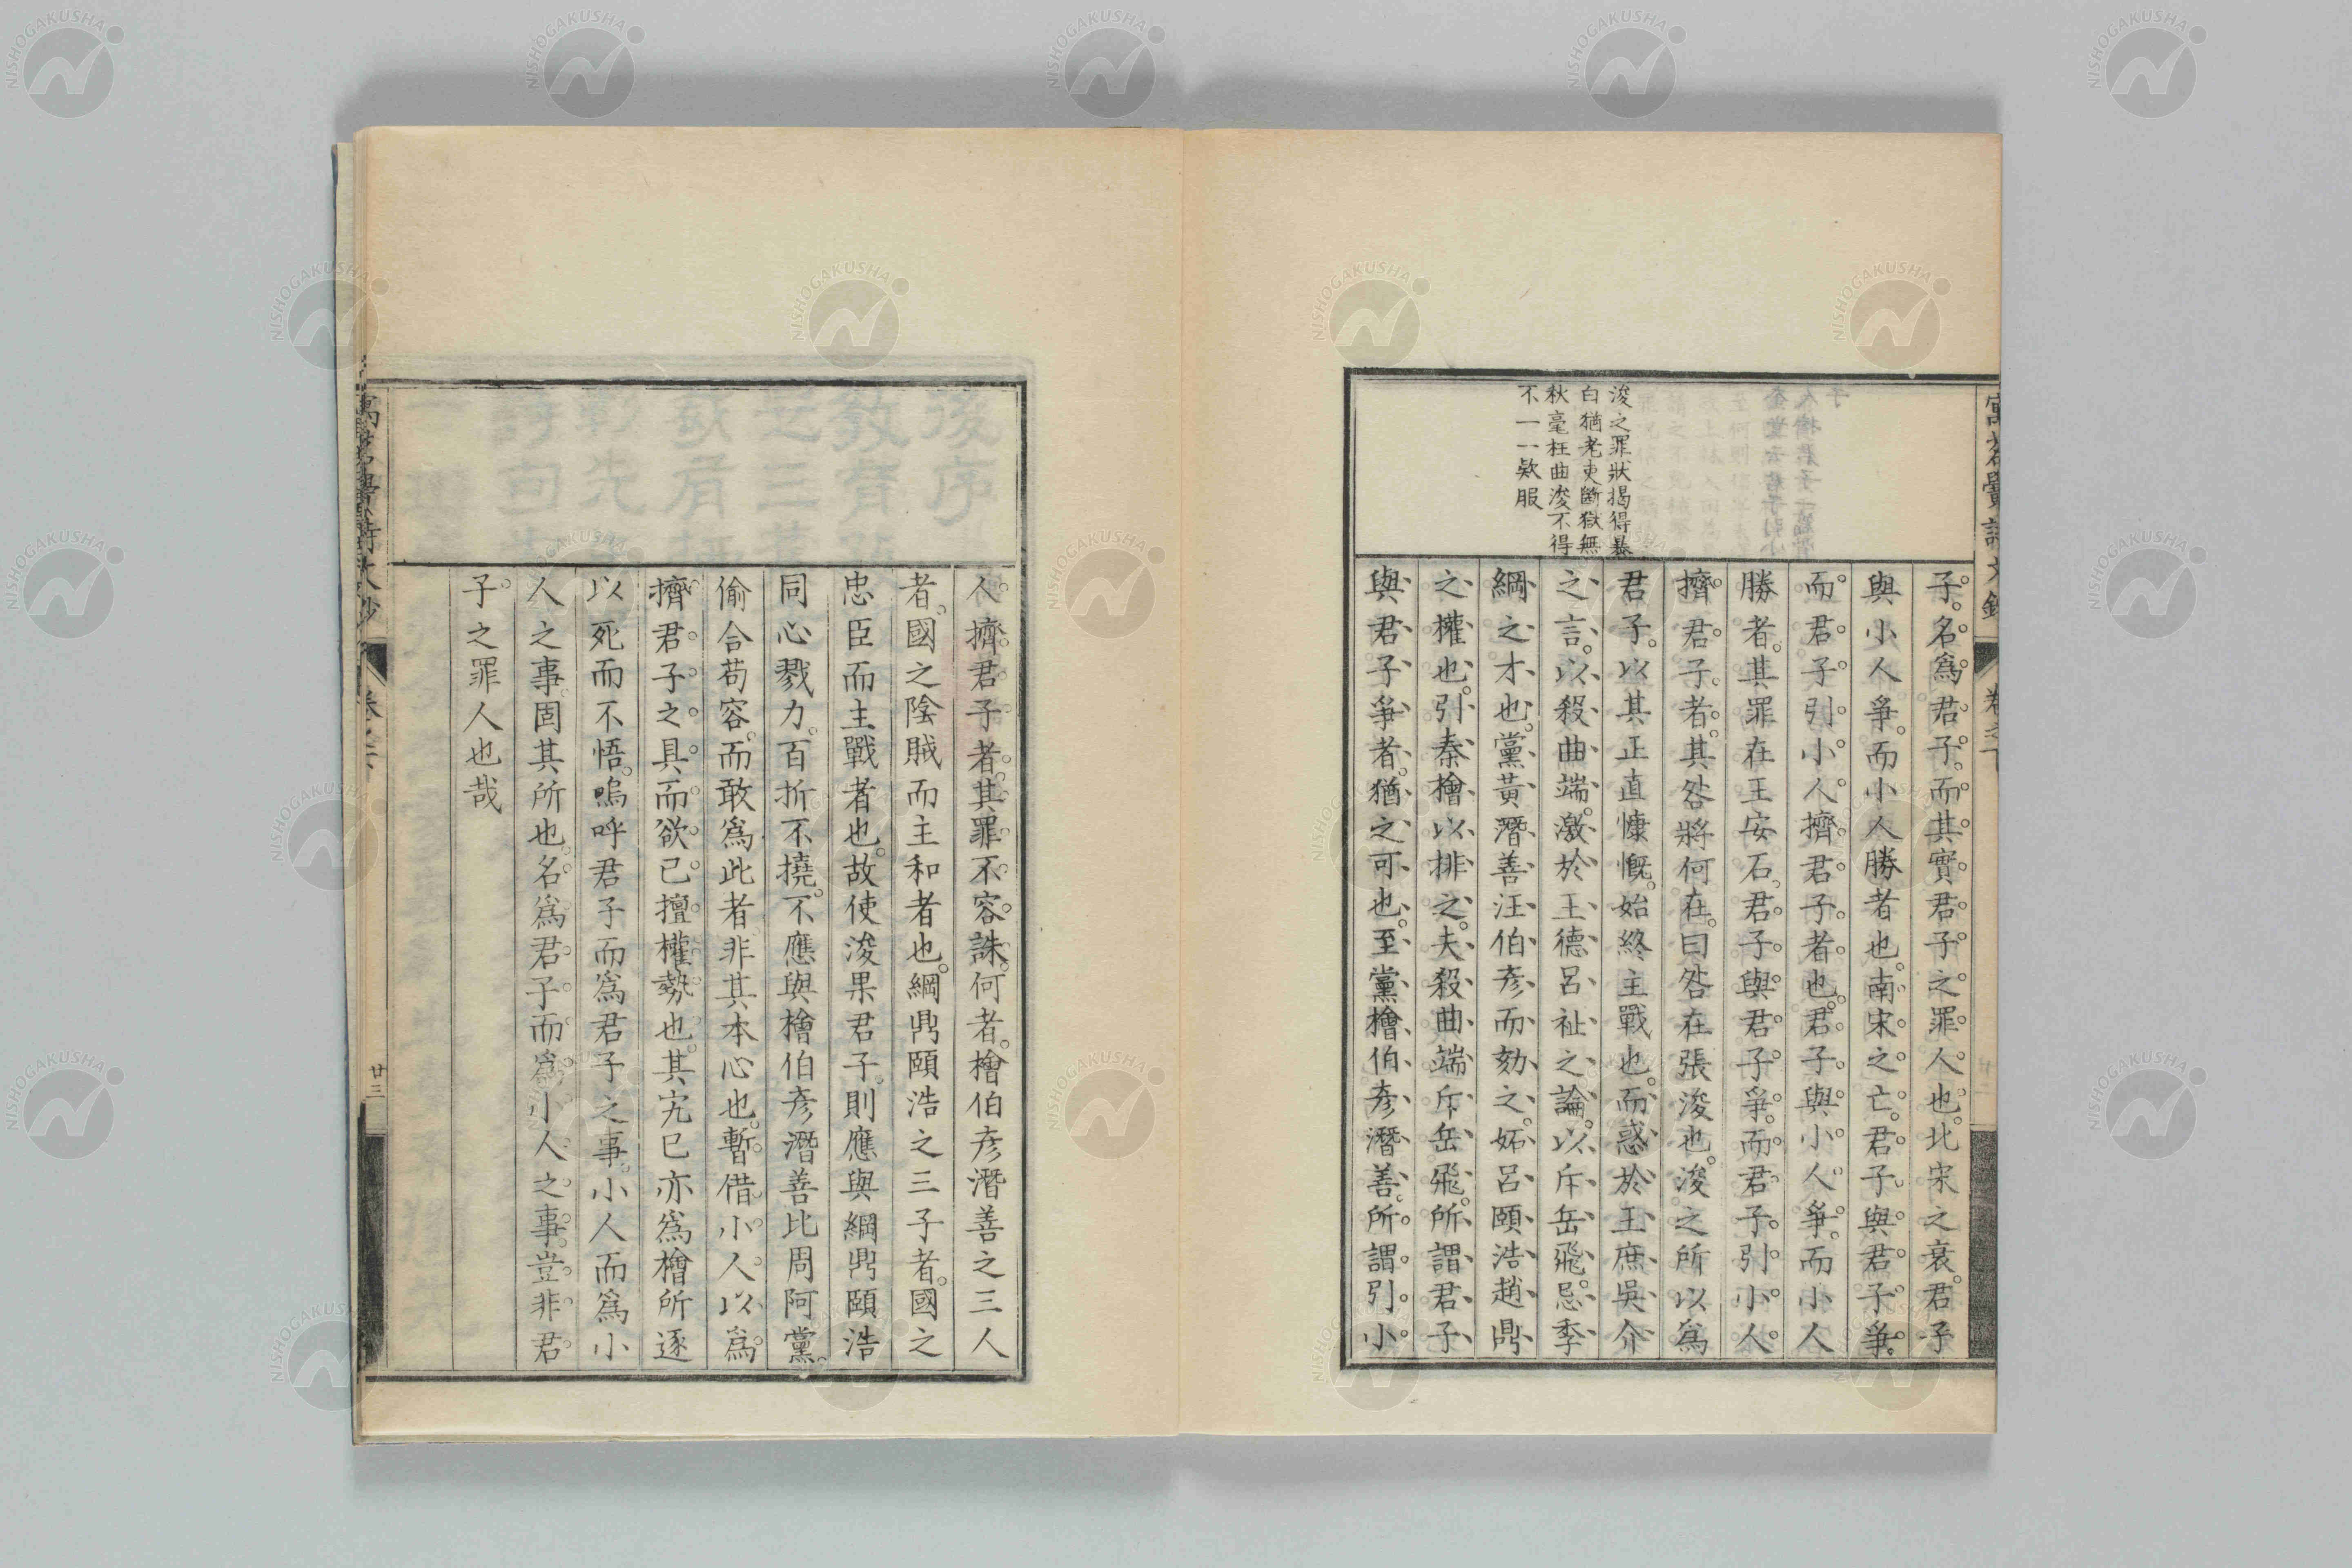 浚之罪狀揭得暴
白猶老吏斷獄無
秋毫枉曲浚不得
不一一欵服
子。名爲君子。而其實君子之罪人也。北宋之衰。君子
與小人爭。而小人勝者也。南宋之亡。君子與君子爭。
而君子引小人擠君子者也。君子與小人爭。而小人
勝者。其罪在王安石。君子與君子爭。而君子引小人
擠君子者。其咎將何在。曰咎在張浚也。浚之所以爲
君子。以其正直慷慨。始終主戰也。而惑於王庶吳介
之言。以殺曲端。激於王德呂祉之論。以斥岳飛。忌李
綱之才也。黨黃潛善汪伯彥而劾之。妬呂頤浩趙鼎
之權也。引秦檜以排之。夫殺曲端斥岳飛。所謂君子
與君子爭者。猶之可也。至黨檜伯彥潛善。所謂引小
人擠君子者。其罪不容誅。何者。檜伯彥潛善之三人
者。國之陰賊而主和者也。綱鼎頤浩之三子者。國之
忠臣而主戰者也。故使浚果君子。則應與綱鼎頤浩
同心戮力。百折不撓。不應與檜伯彥潛善比周阿黨。
偷合苟容。而敢爲此者非其本心也。暫借小人以爲
擠君子之具。而欲己擅權勢也。其究已亦爲檜所逐
以死而不悟。嗚呼君子而爲君子之事。小人而爲小
人之事。固其所也。名爲君子而爲小人之事。豈非君
子之罪人也哉
廿三
NISHOGAKUSHA